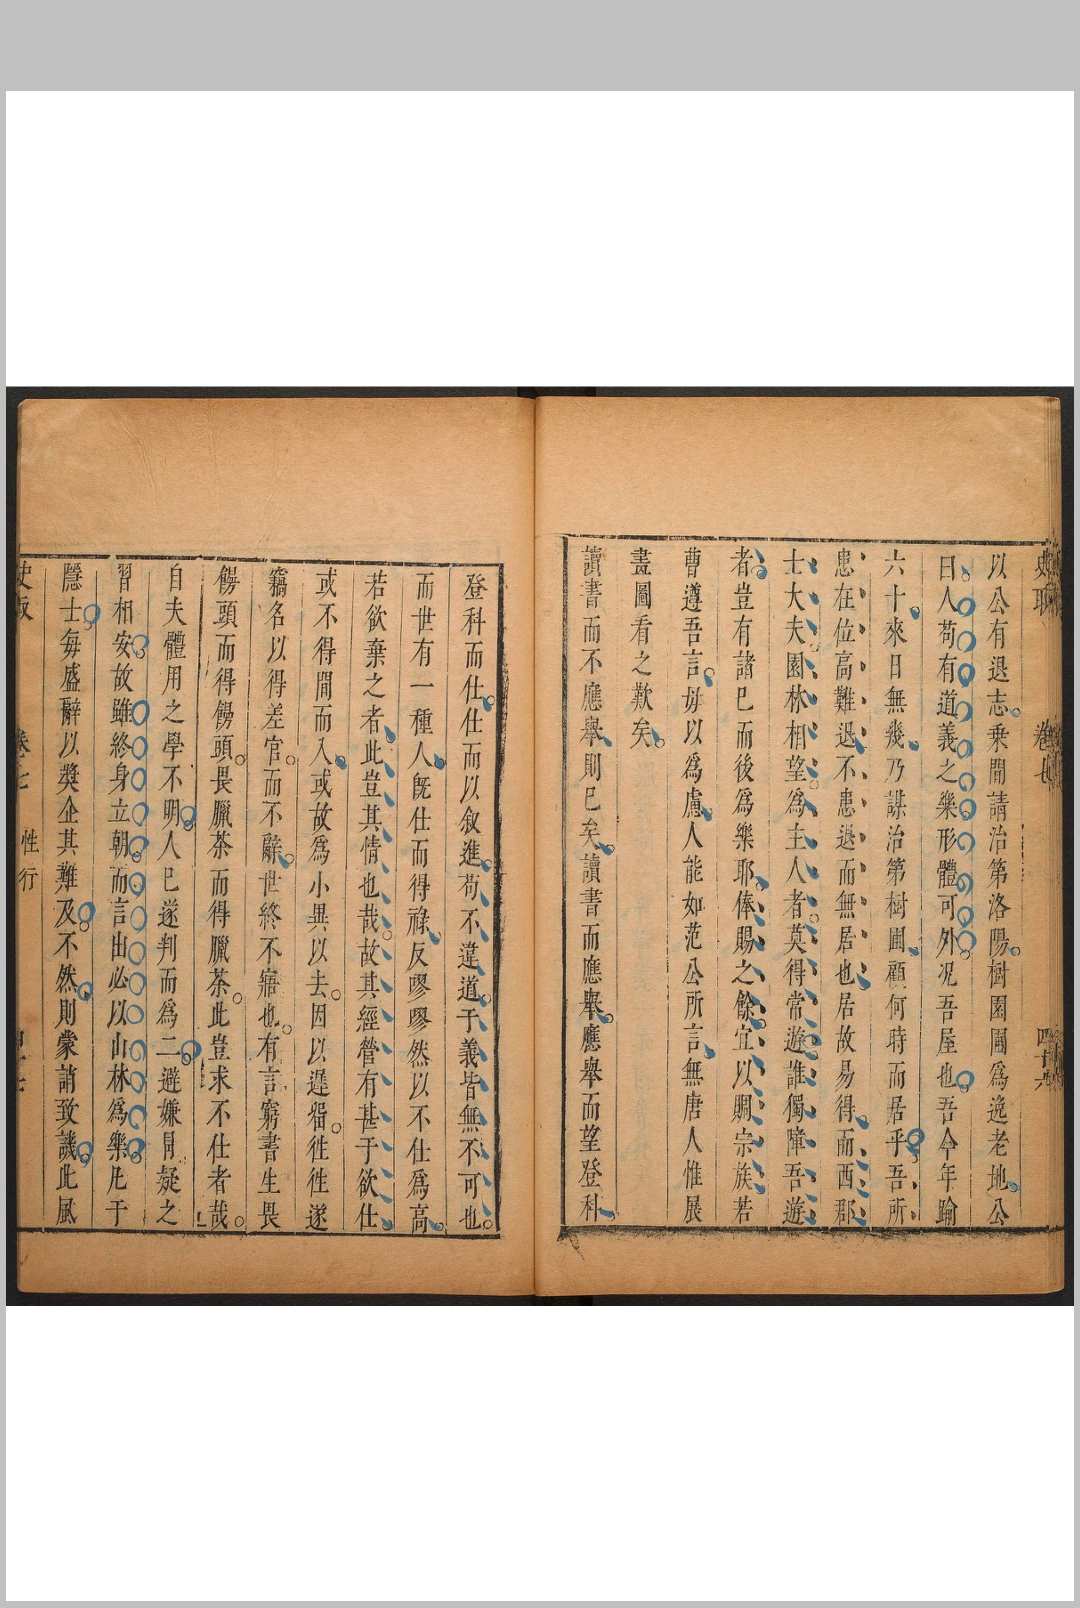 以公有退志乗間請治第洛陽樹園圃爲逸老地公
曰人苟有道義之樂形體可外况吾屋也吾今年踰
六十來日無幾乃謀治第樹圃顧何時而居乎吾所
患在位高難退不患退而無居也居故易得而西郡
士大夫園林相望爲主人者莫得常遊誰獨障吾遊
者豈有諸巳而後爲樂耶俸賜之餘宜以賙宗族若
曹遵吾言毋以爲慮人能如范公所言無唐人惟展
畫圖看之歎矣
讀書而不應舉則巳矣讀書而應舉應舉而望登科
登科而仕仕而以敘進苟不違道于義皆無不可也
而世有一種人既仕而得祿反嘐嘐然以不仕爲高
若欲棄之者此豈其情也哉故其經營有甚于欲仕
或不得間而入或故爲小異以去因以遲徊徃徃遂
竊名以得差官而不辭世終不寤也有言窮書生畏
饅頭而得饅頭畏臘茶而得臘茶此豈求不仕者哉
自夫體用之學不明人巳遂判而爲二避嫌冐疑之
習相安故雖終身立朝而言出必以山林爲樂凡于
隱士每盛辭以奬企其難及不然則蒙誚致譏此風
卷七
性行